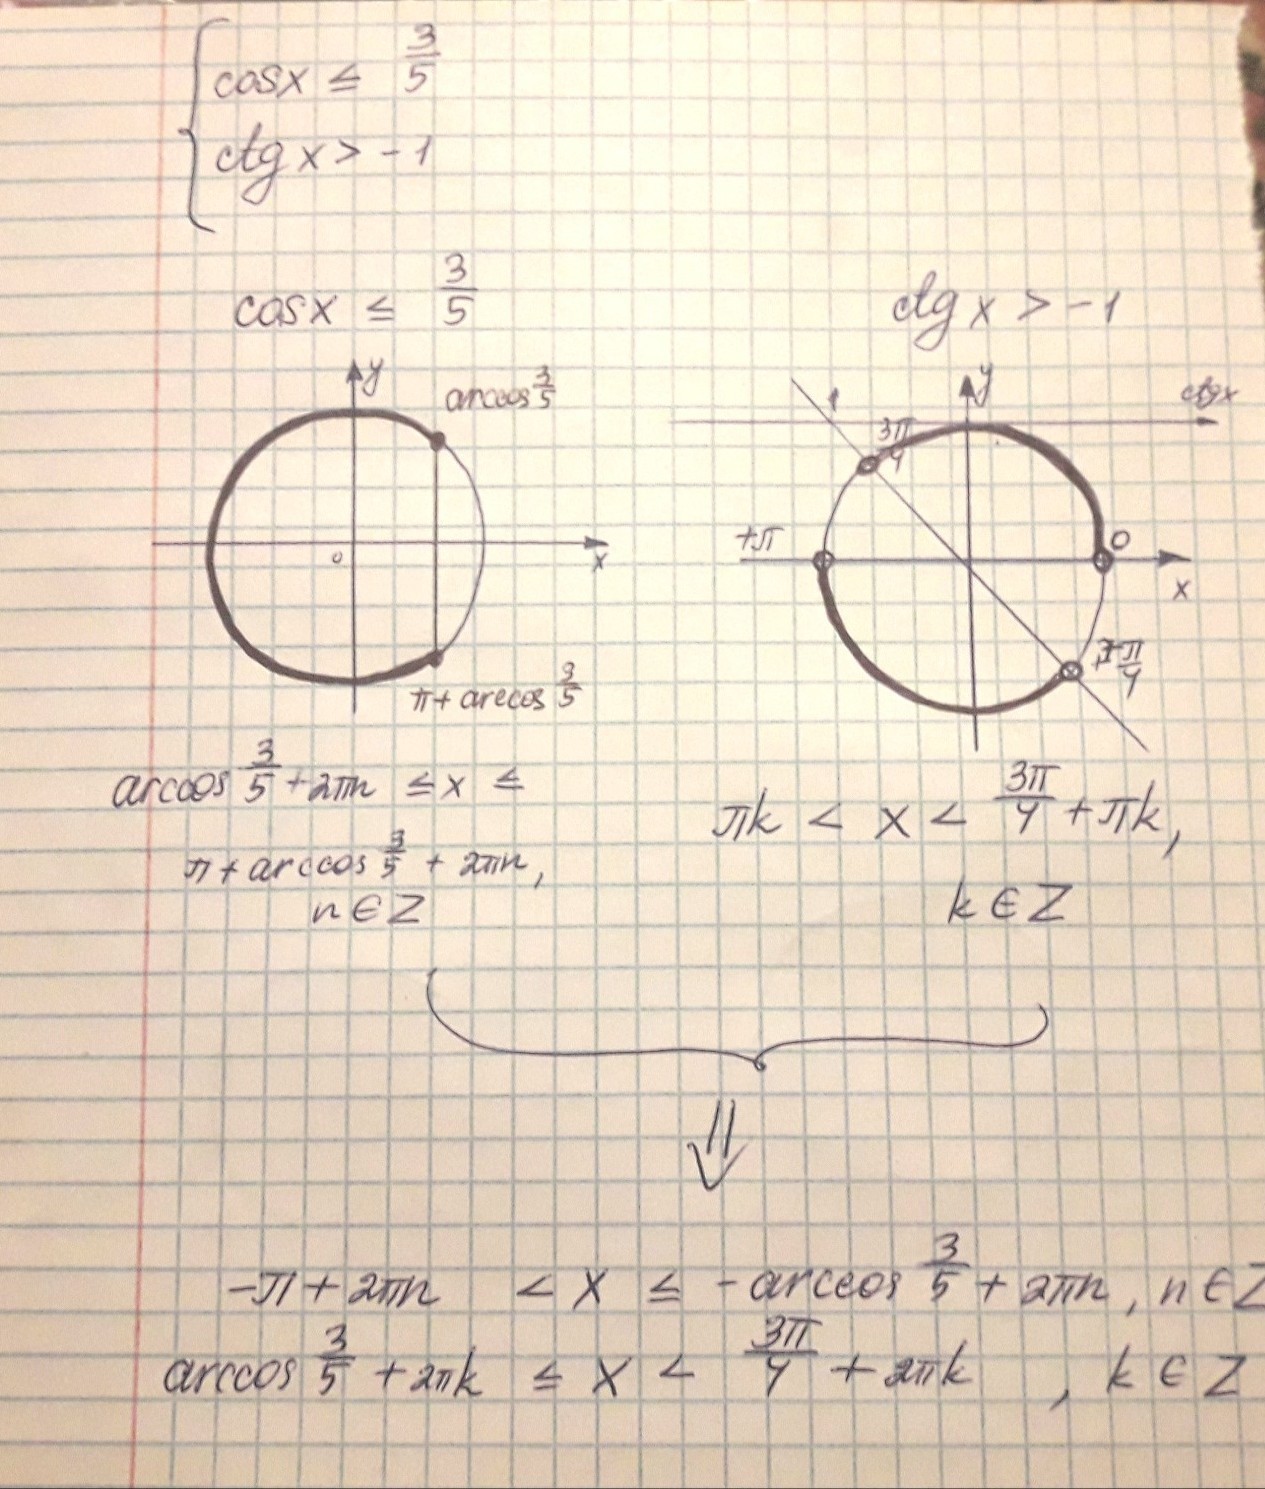 cosx ≤ 3/5
ctg x > -1
cosx ≤ 3/5
ctg x > -1
y
arccos 3/5
0
x
π + arccos 3/5
y
ctgx
3π/4
+π
0
x
π/4
arccos 3/5 + 2πn ≤ x ≤
π + arccos 3/5 + 2πn,
n ∈ Z
πk < x < 3π/4 + πk,
k ∈ Z
-π + 2πn < x ≤ -arccos 3/5 + 2πn, n ∈ Z
arccos 3/5 + 2πk ≤ x < 3π/4 + 2πk, k ∈ Z